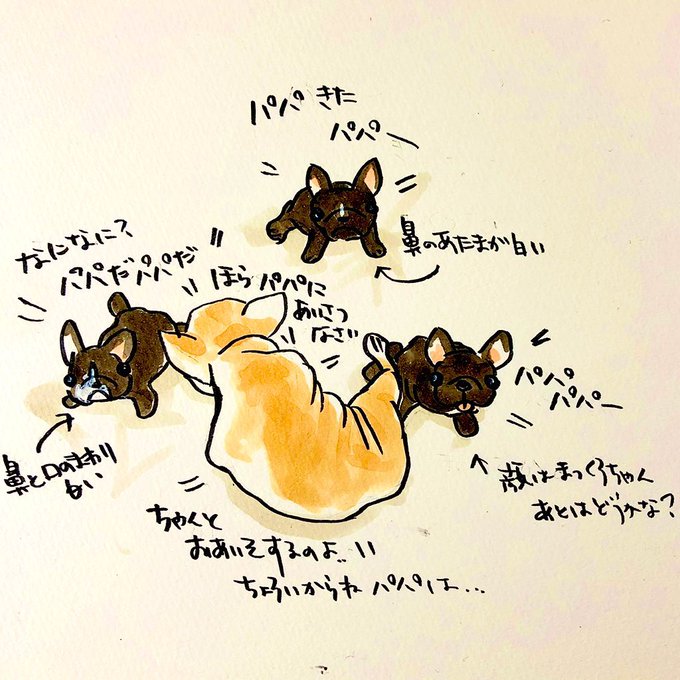 パパ きた
パパー
鼻のあたまが白い
なになに?
パパだパパだ
ほら パパに
あいさつ
なさい
パパパ
パパー
鼻と口のまわり
白い
顔はまっくろちゃん
あとはどうかな?
ちゃんと
おあいそするのよ
ちょろいからね パパは...